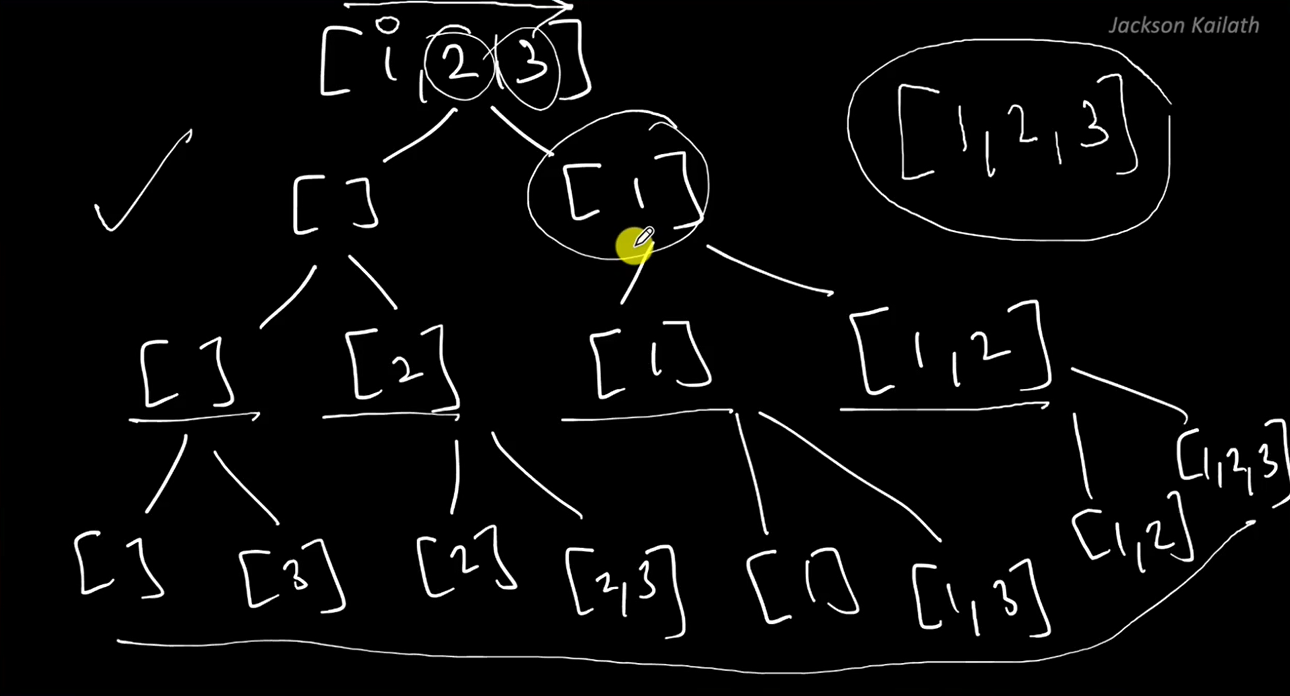 Jackson Kailath
[1,2,3]
[1,2,3]
[ ] [1]
[ ] [2] [1] [1,2]
[ ] [3] [2] [2,3] [1] [1,3] [1,2] [1,2,3]